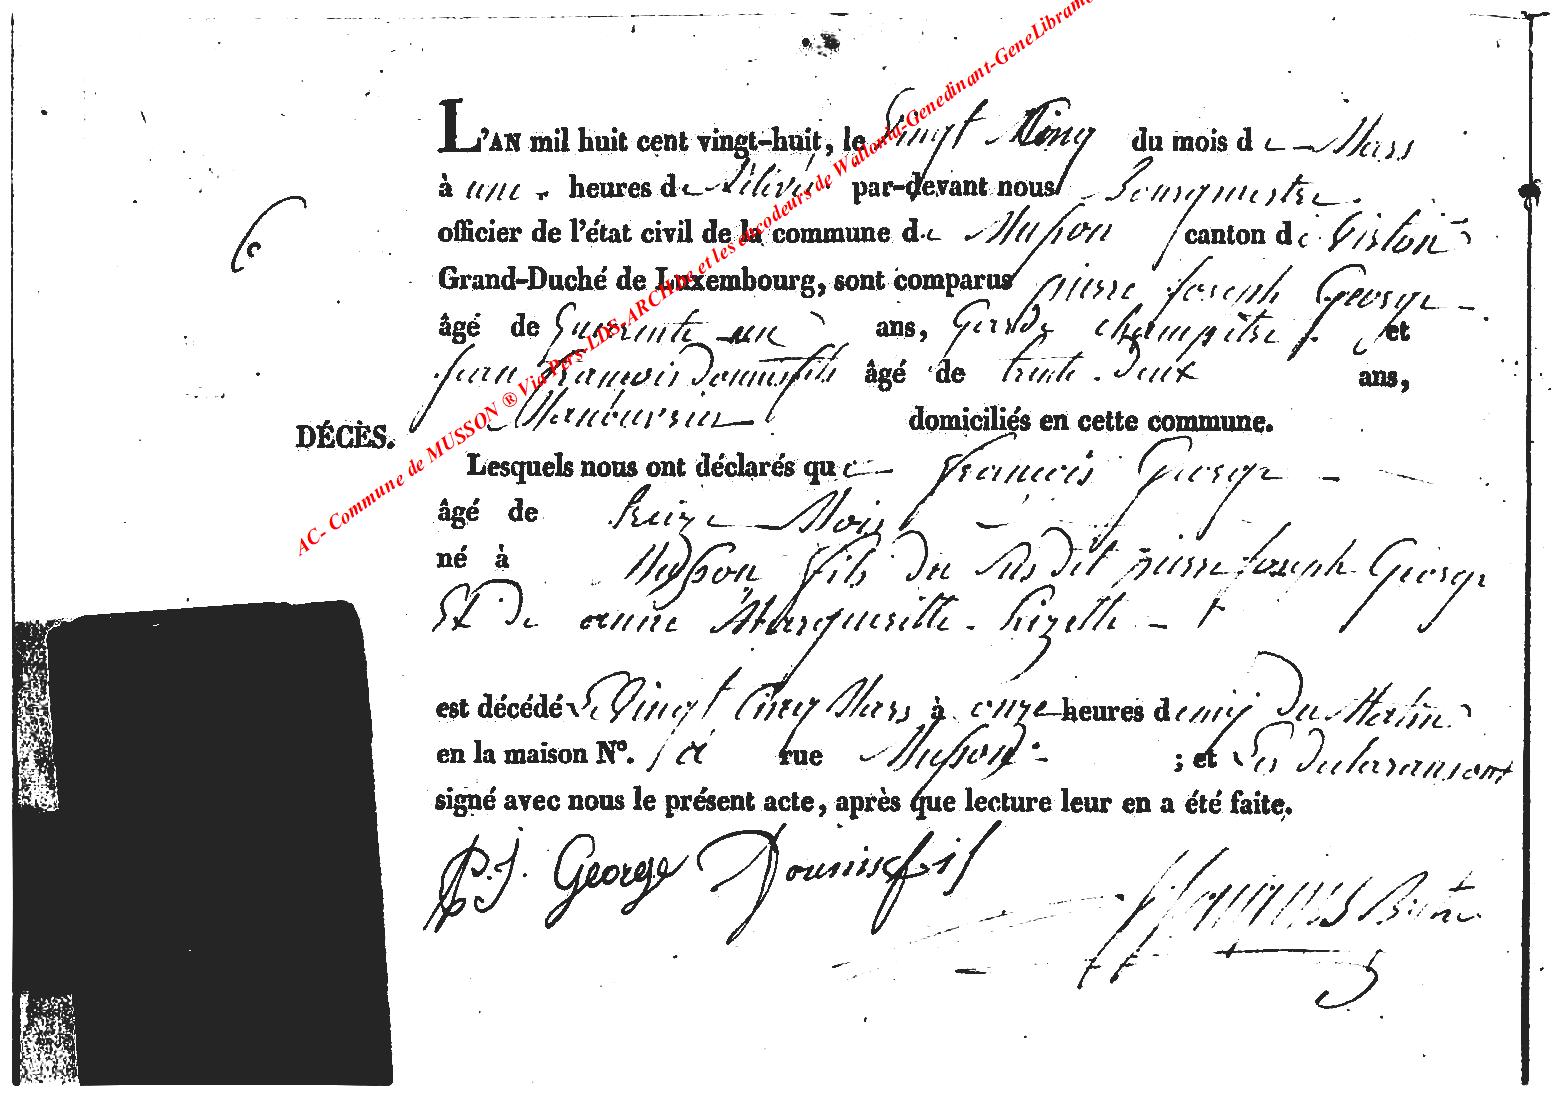 AC- Commune de MUSSON ® Via Pers-LDS, ARCH.be et les encodeurs de Wallonia-Genedinant-GeneLibrame
6
L'AN mil huit cent vingt-huit, le Vingt Cinq du mois de Mars
à une heures de par-devant nous Bourgmestre
officier de l'état civil de la commune de Musson canton de Virton
Grand-Duché de Luxembourg, sont comparus pierre Joseph George
âgé de quarente un ans, Garde champêtre et
Jean François Dounisfils âgé de trente deux ans,
Manouvrier domiciliés en cette commune.
DÉCÈS.
Lesquels nous ont déclarés que François George
âgé de Mois
né à Musson fils du Sus dit pierre Joseph George
Et de anne Margueritte
est décédé Le Vingt Cinq Mars à onze heures demij Du Matin
en la maison N°. à rue Musson ; et Les
signé avec nous le présent acte, après que lecture leur en a été faite.
P.J. George Dounisfils